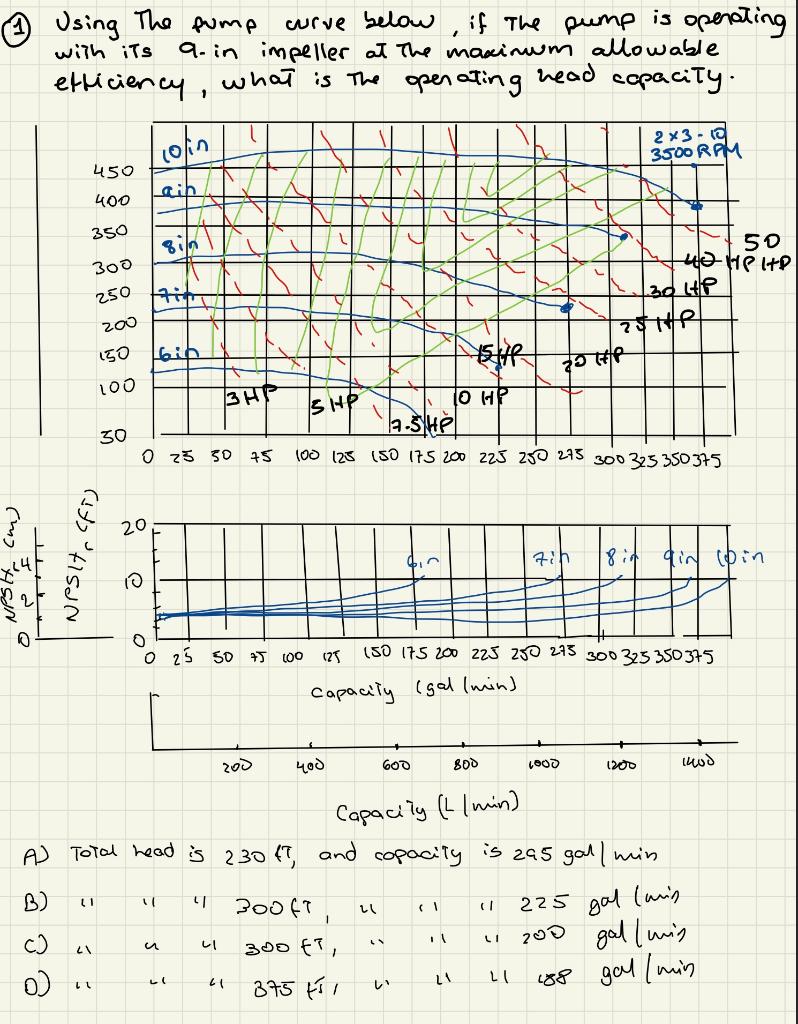 ① Using The pump curve below, if The pump is operating
with its 9-in impeller at The maximum allowable
efficiency, what is The operating head capacity.
10in
2x3-10
3500RPM
450
9in
400
350
50
HP
8in
40 HP
300
30 HP
250
7in
25 HP
200
15 HP
20 HP
150
6in
100
3HP
5 HP
10 HP
7.5HP
50
0 25 50 75 100 125 150 175 200 225 250 275 300 325 350 375
NPSHr (m)
NPSHr (FT)
20
4
6in 7in 8in 9in 10in
10
2
0
0
0 25 50 75 100 125 150 175 200 225 250 275 300 325 350 375
Capacity (gal/min)
200 400 600 800 1000 1200 1400
Capacity (L/min)
A) Total head is 230 ft, and capacity is 295 gal/min
B) " " " 300 ft, " " " 225 gal/min
C) " " " 300 ft, " " " 200 gal/min
D) " " " 375 ft, " " " 188 gal/min